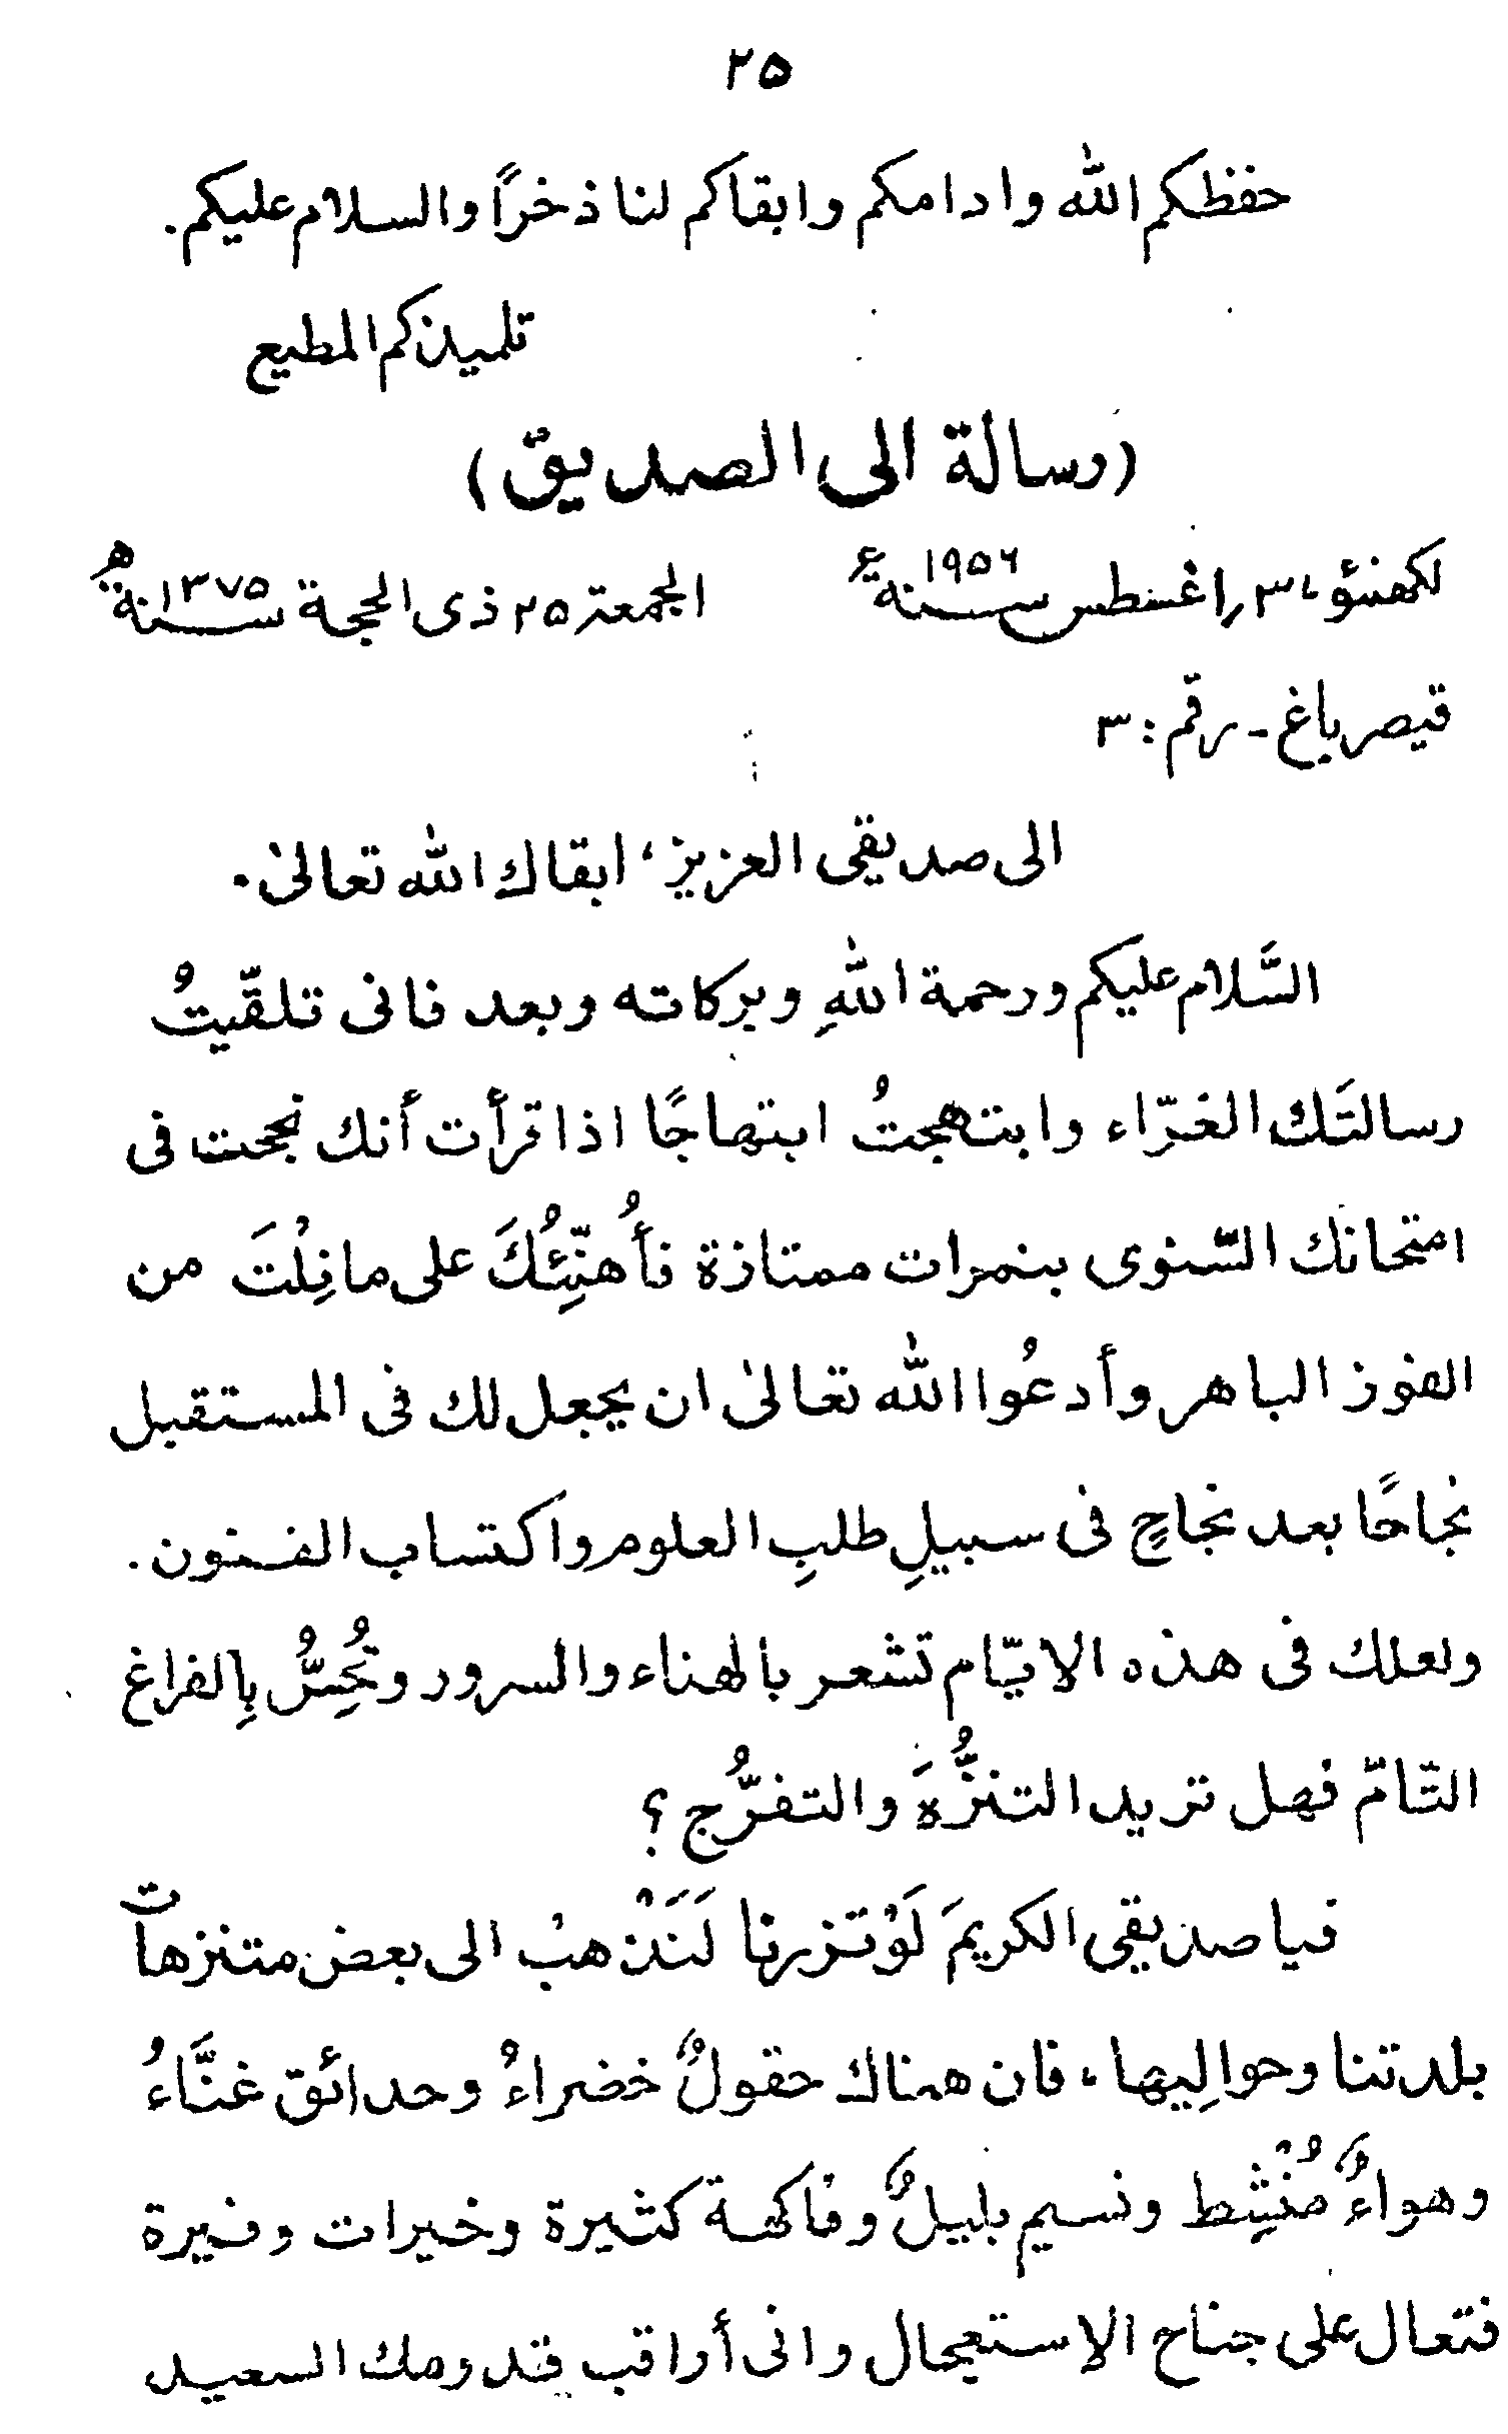 ٢٥
حفظكم الله وادامكم وابقاكم لنا ذخراً والسلام عليكم.
تلميذكم المطيع
(رسالة الى الصديق)
لكهنؤ، ٣/اغسطس سنة ١٩٥٦ء الجمعة ٢٥ ذى الحجة سنة ١٣٧٥ھ
قيصر باغ - رقم : ٣
الى صديقى العزيز، ابقاك الله تعالىٰ.
السَّلام عليكم ورحمة اللهِ وبركاته وبعد فانى تلقّيتُ
رسالتَك الغرّاء وابتهجتُ ابتهاجًا اذا قرأت أنك نجحت فى
امتحانك السّنوى بنمرات ممتازة فأُهنّئِكُ على ما نِلْتَ من
الفوز الباهر وأدعُوا الله تعالىٰ ان يجعل لك فى المستقبل
نجاحًا بعد نجاحٍ فى سبيلِ طلبِ العلوم واكتساب الفنون.
ولعلك فى هذه الايّام تشعر بالهناء والسرور وتُحِسُّ بِالفراغ
التّامّ فهل تريد التنزُّهَ والتفرُّج ؟
فيا صديقى الكريمَ لَوْ تزرنا لَنَذْهبْ الى بعض متنزهات
بلدتنا وحوالِيها، فان هناك حقولٌ خضراءُ وحدائق غنَّاءُ
وهواءٌ مُنْشِط ونسيم بليلٌ وفاكهة كثيرة وخيرات وفيرة
فتعال على جناح الاستعجال وانى أراقب قدومك السعيد